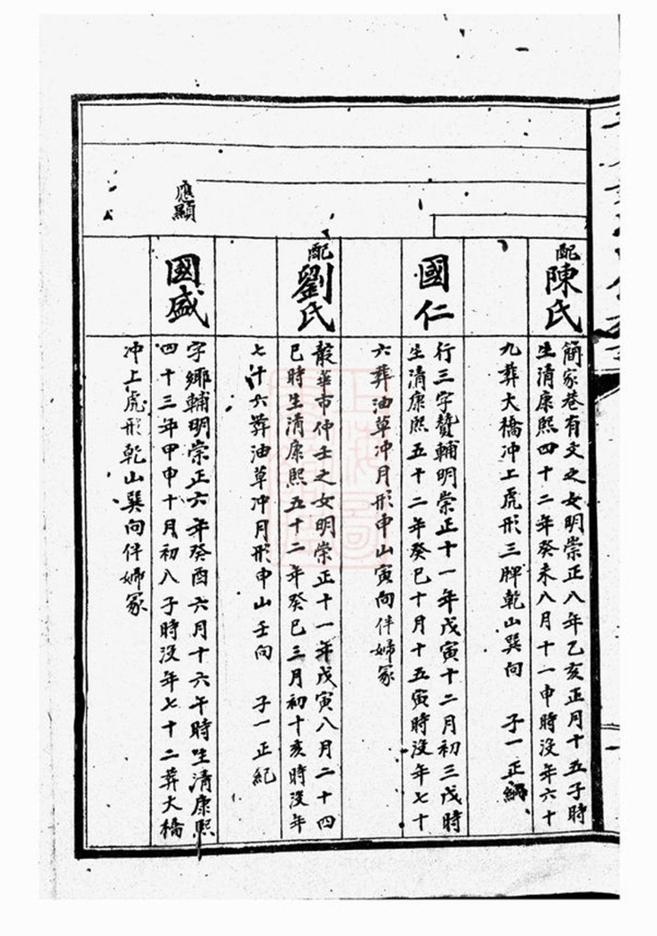 配陳氏
簡家巷有文之女明崇正八年乙亥正月十五子時
生清康熙四十二年癸未八月十一申時没年六十
九葬大橋冲上虎形三脾乾山巽向 子一正
國仁
行三字贊輔明崇正十一年戊寅十二月初三戌時
生清康熙五十二年癸巳十月十五寅時没年七十
六葬油草冲月形申山寅向伴婦冢
配劉氏
華市仲士之女明崇正十一年戊寅八月二十四
巳時生清康熙五十二年癸巳三月初十亥時没年
七十六葬油草冲月形申山壬向 子一正紀
應顯
國盛
字鄉輔明崇正六年癸酉六月十六午時生清康熙
四十三年甲申十月初八子時没年七十二葬大橋
冲上虎形乾山巽向伴婦冢